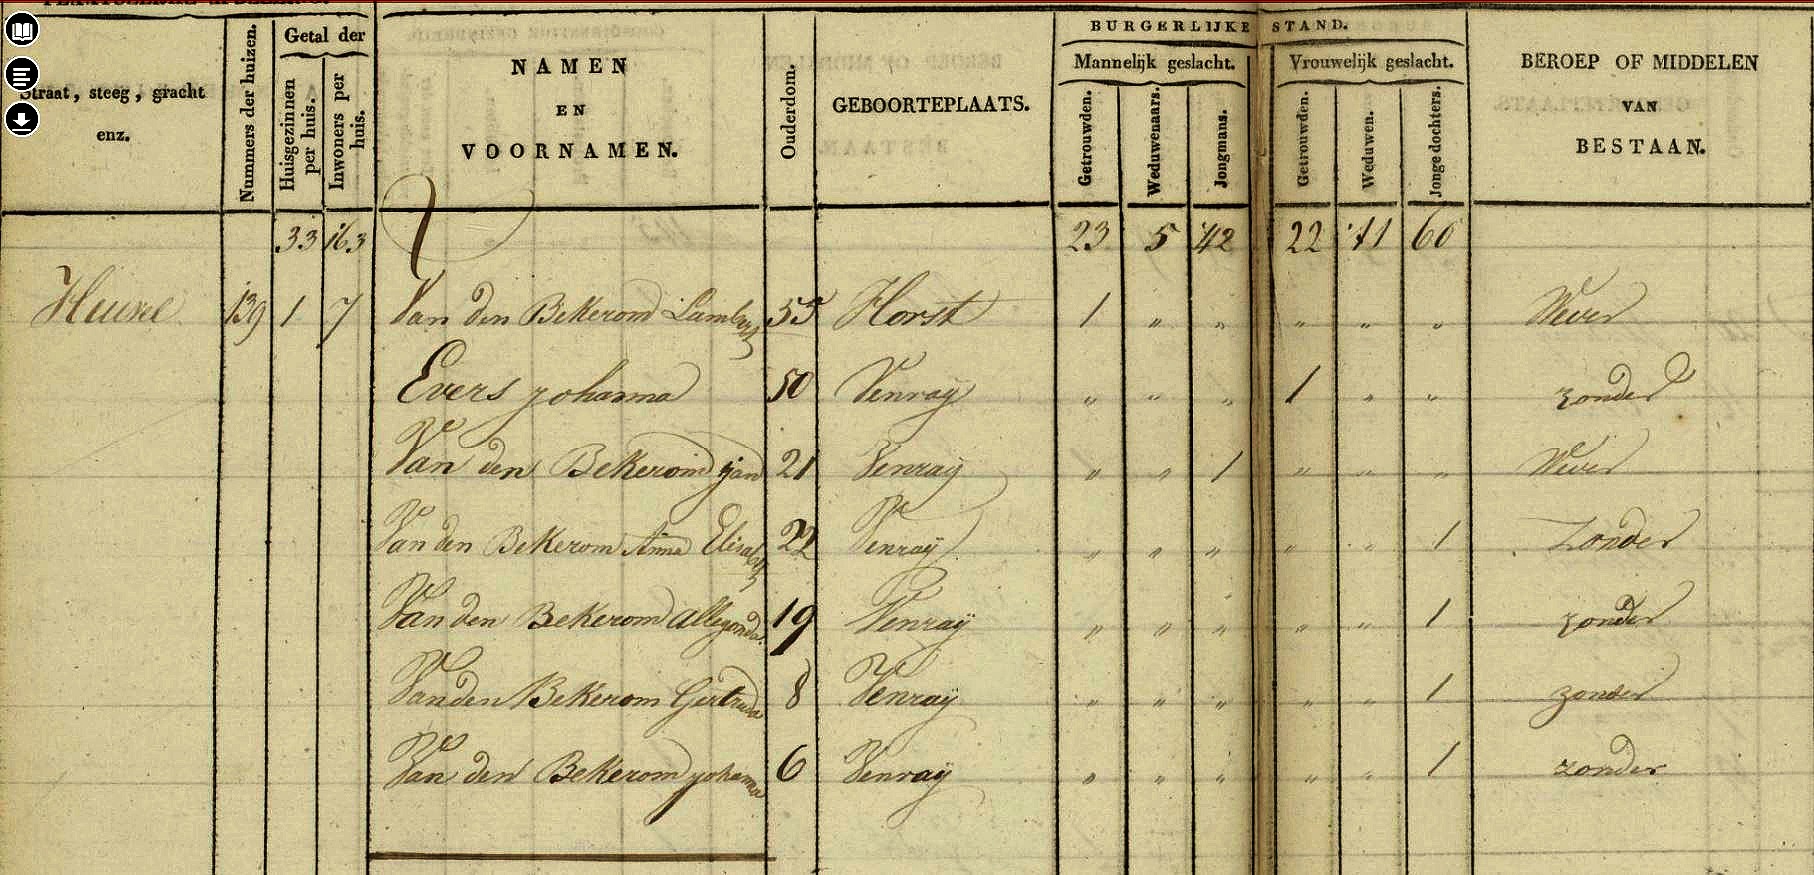 Straat, steeg, gracht enz.
Nummers der huizen.
Getal der
Huisgezinnen per huis.
Inwoners per huis.
NAMEN
EN
VOORNAMEN.
Ouderdom.
GEBOORTEPLAATS.
BURGERLIJKE STAND.
Mannelijk geslacht.
Vrouwelijk geslacht.
Getrouwden.
Weduwenaars.
Jongmans.
Getrouwden.
Weduwen.
Jonge dochters.
BEROEP OF MIDDELEN
VAN
BESTAAN.
33 163 23 5 42 22 11 60
139 1 7 Van den Bekerom Lambert 55 Horst 1 " " " " " Wever
Evers Johanna 50 Venray " " " 1 " " zonder
Van den Bekerom Jan 21 Venraÿ " " 1 " " " Wever
Van den Bekerom Anna Elisabeth 22 Venraÿ " " " " " 1 Zonder
Van den Bekerom Allegonda. 19 Venraÿ " " " " " 1 zonder
Van den Bekerom Gertruda 8 Venraÿ " " " " " 1 zonder
Van den Bekerom Johanna 6 Venraÿ " " " " " 1 zonder